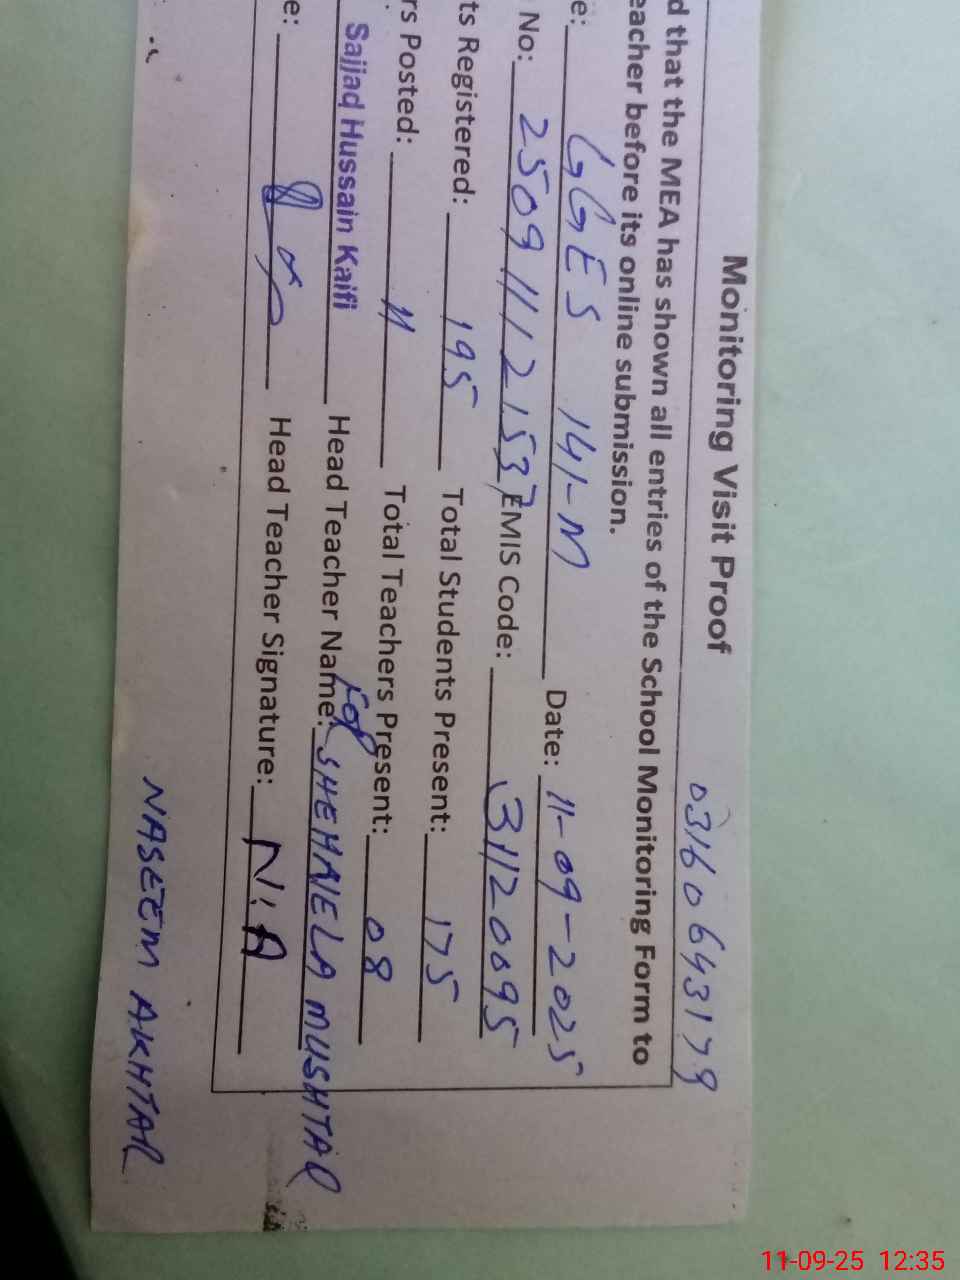 03160643179
Monitoring Visit Proof
d that the MEA has shown all entries of the School Monitoring Form to
eacher before its online submission.
e: GGES 141-M Date: 11-09-2025
No: 25091112153 EMIS Code: 31120095
ts Registered: 195 Total Students Present: 175
rs Posted: 11 Total Teachers Present: 08
Sajjad Hussain Kaifi Head Teacher Name: For SHEHAIELA MUSHTAQ
e: Head Teacher Signature: N.A
NASEEM AKHTAR
11-09-25 12:35